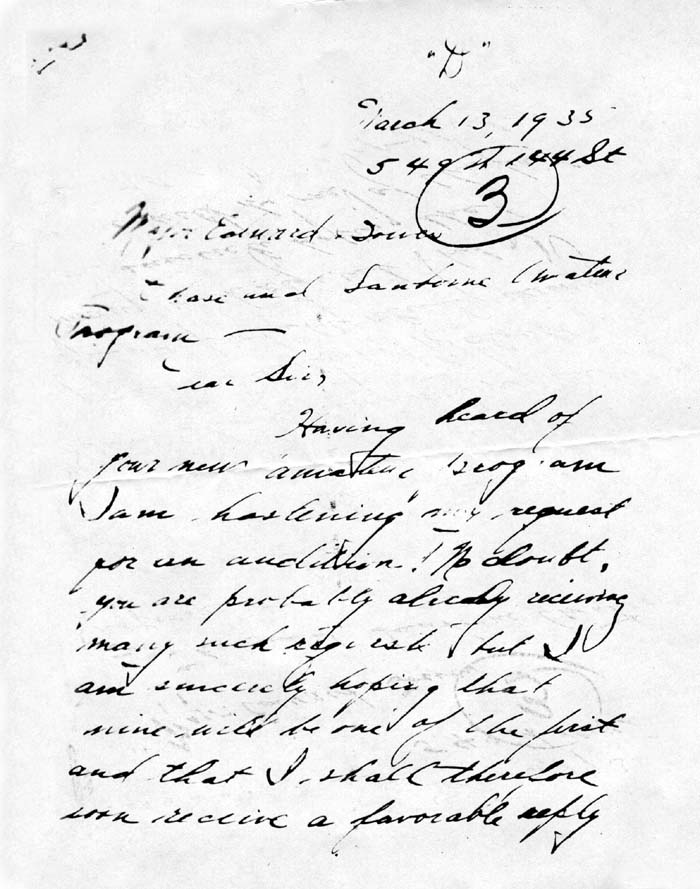 "D"
March 13, 1935
549 W 144 St
3
Major Edward Bowes
Chase and Sanborne Amateur
Program —
Dear Sir,
Having heard of
your new amateur program
I am hastening my request
for an audition. No doubt,
you are probably already receiving
many such requests but I
am sincerely hoping that
mine will be one of the first
and that I shall therefore
soon receive a favorable reply